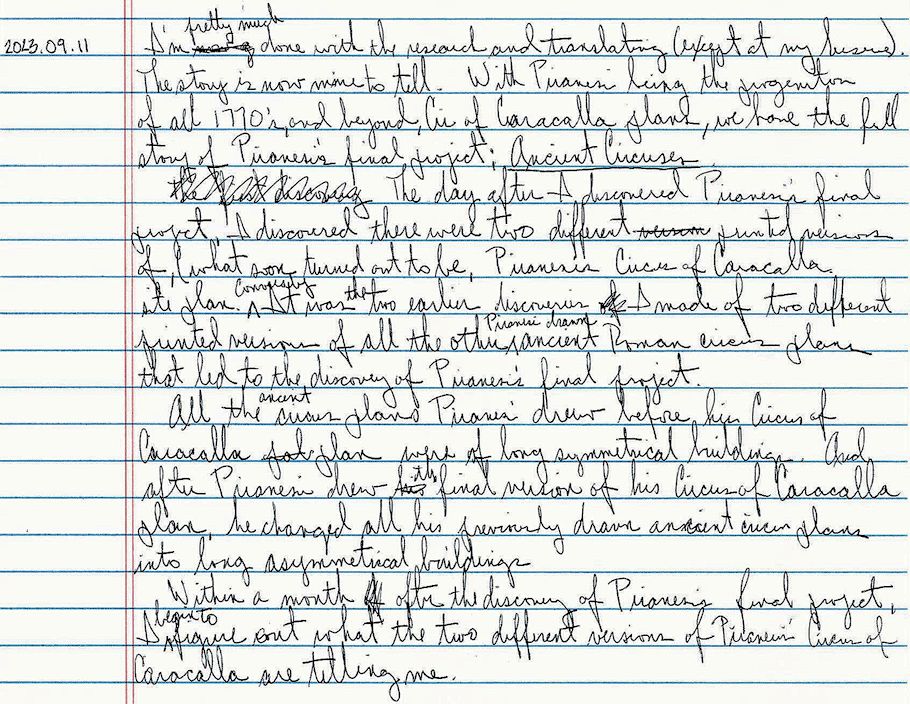 2023.09.11
pretty much
I'm done with the research and translating (except at my leisure).
The story is now mine to tell. With Piranesi being the progenitor
of all 1770's, and beyond, Cir of Caracalla plans, we have the full
story of Piranesi's final project: Ancient Circuses.
the first discovery The day after I discovered Piranesi's final
project, I discovered there were two different version printed versions
of, (what soon turned out to be, Piranesi's Circus of Caracalla
site plan. Conversely It was the two earlier discoveries of I made of two different
Piranesi drawn
printed versions of all the other ancient Roman circus plans
that led to the discovery of Piranesi's final project.
ancient
All the circus plans Piranesi drew before his Circus of
Caracalla plan were of long symmetrical buildings. And,
after Piranesi drew his the final version of his Circus of Caracalla
plan, he changed all his previously drawn ancient circus plans
into long asymmetrical buildings
Within a month after the discovery of Piranesi's final project,
begin to
I figure out what the two different versions of Piranesi's Circus of
Caracalla are telling me.